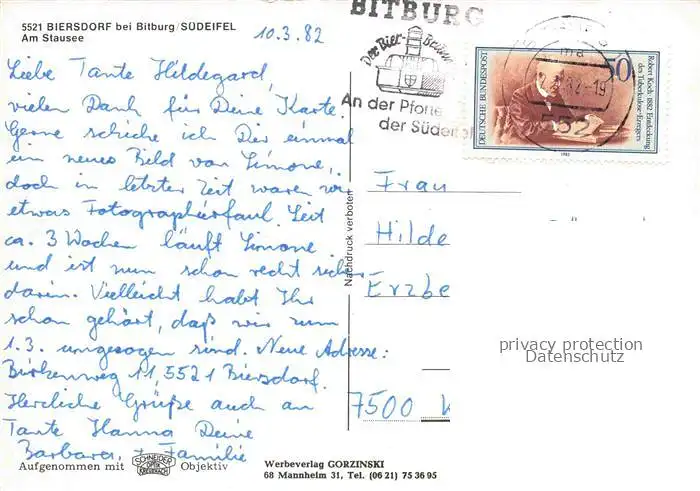 5521 BIERSDORF bei Bitburg/SÜDEIFEL
Am Stausee
10.3.82
Liebe Tante Hildegard,
vielen Dank für Deine Karte.
Gerne schicke ich Dir einmal
ein neues Bild von Simone,
doch in letzter Zeit waren wir
etwas Fotographierfaul. Seit
ca. 3 Wochen läuft Simone
und ist nun schon recht sicher
darin. Vielleicht habt Ihr
schon gehört, daß wir zum
1.3. umgezogen sind. Neue Adresse:
Birkenweg 11, 5521 Biersdorf.
Herzliche Grüße auch an
Tante Hanna Deine
Barbara + Familie
Aufgenommen mit SCHNEIDER OPTIK KREUZNACH Objektiv
Werbeverlag GORZINSKI
68 Mannheim 31, Tel. (06 21) 75 36 95
Nachdruck verboten
BITBURG
Der Bier-
An der Pforte
der Südeifel
50
DEUTSCHE BUNDESPOST
Robert Koch 1882 Entdeckung
des Tuberkulose-Erregers
1982
552
Frau
Hilde
Erzbe
7500 K
privacy protection
Datenschutz